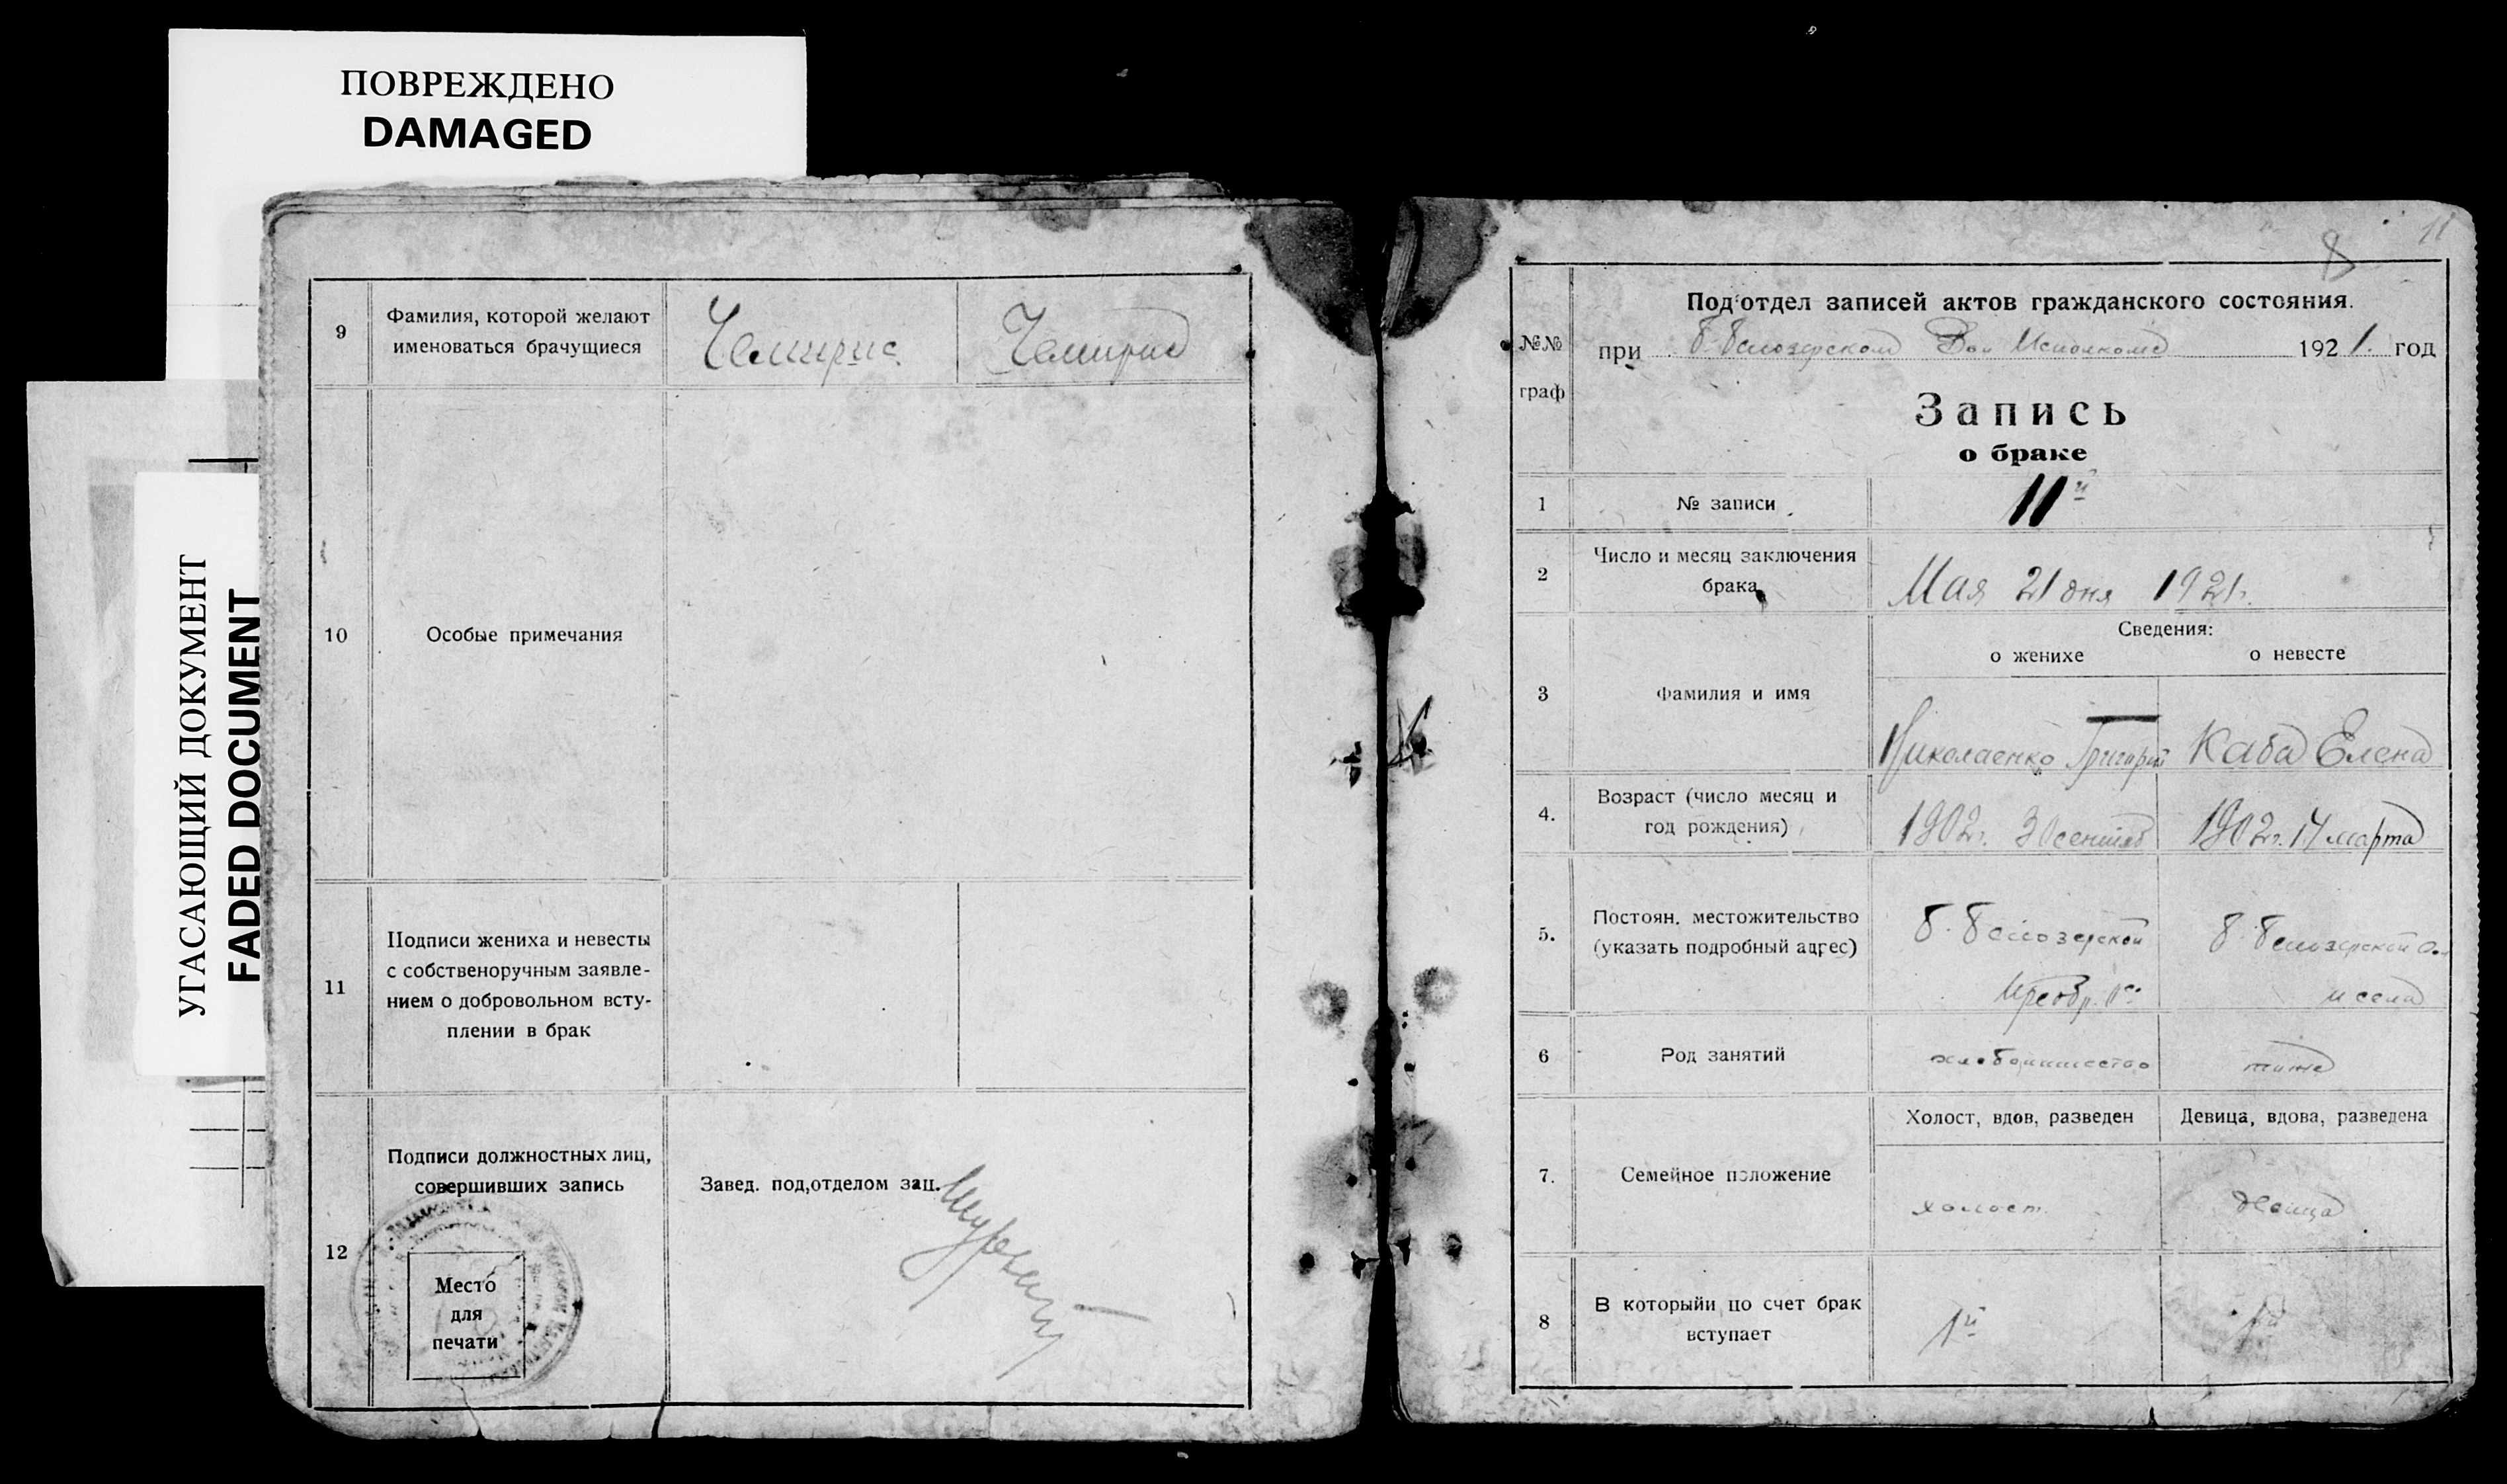 ПОВРЕЖДЕНО
DAMAGED
УГАСАЮЩИЙ ДОКУМЕНТ
FADED DOCUMENT
9
Фамилия, которой желают
именоваться брачущиеся
Чемирис
Чемирис
10
Особые примечания
11
Подписи жениха и невесты
с собственоручным заявле-
нием о добровольном всту-
плении в брак
12
Подписи должностных лиц,
совершивших запись
Завед. под,отделом зац.
Место
для
печати
11
8
№№
граф
Под'отдел записей актов гражданского состояния.
при Б. Белозерском Вол Исполкоме 1921. год
Запись
о браке
1
№ записи
11й
2
Число и месяц заключения
брака
Мая 21 дня 1921г.
Сведения:
о женихе
о невесте
3
Фамилия и имя
Николаенко Григорий
Каба Елена
4.
Возраст (число месяц и
год рождения)
1902г. 30 сентяб
1902г. 14 марта
5.
Постоян. местожительство
(указать подробный адрес)
Б. Белозерской
Б. Белозерской
и села
6
Род занятий
хлебопашество
тоже
7.
Семейное положение
Холост, вдов, разведен
Девица, вдова, разведена
холост
девица
8
В которыйи по счет брак
вступает
1й
1й